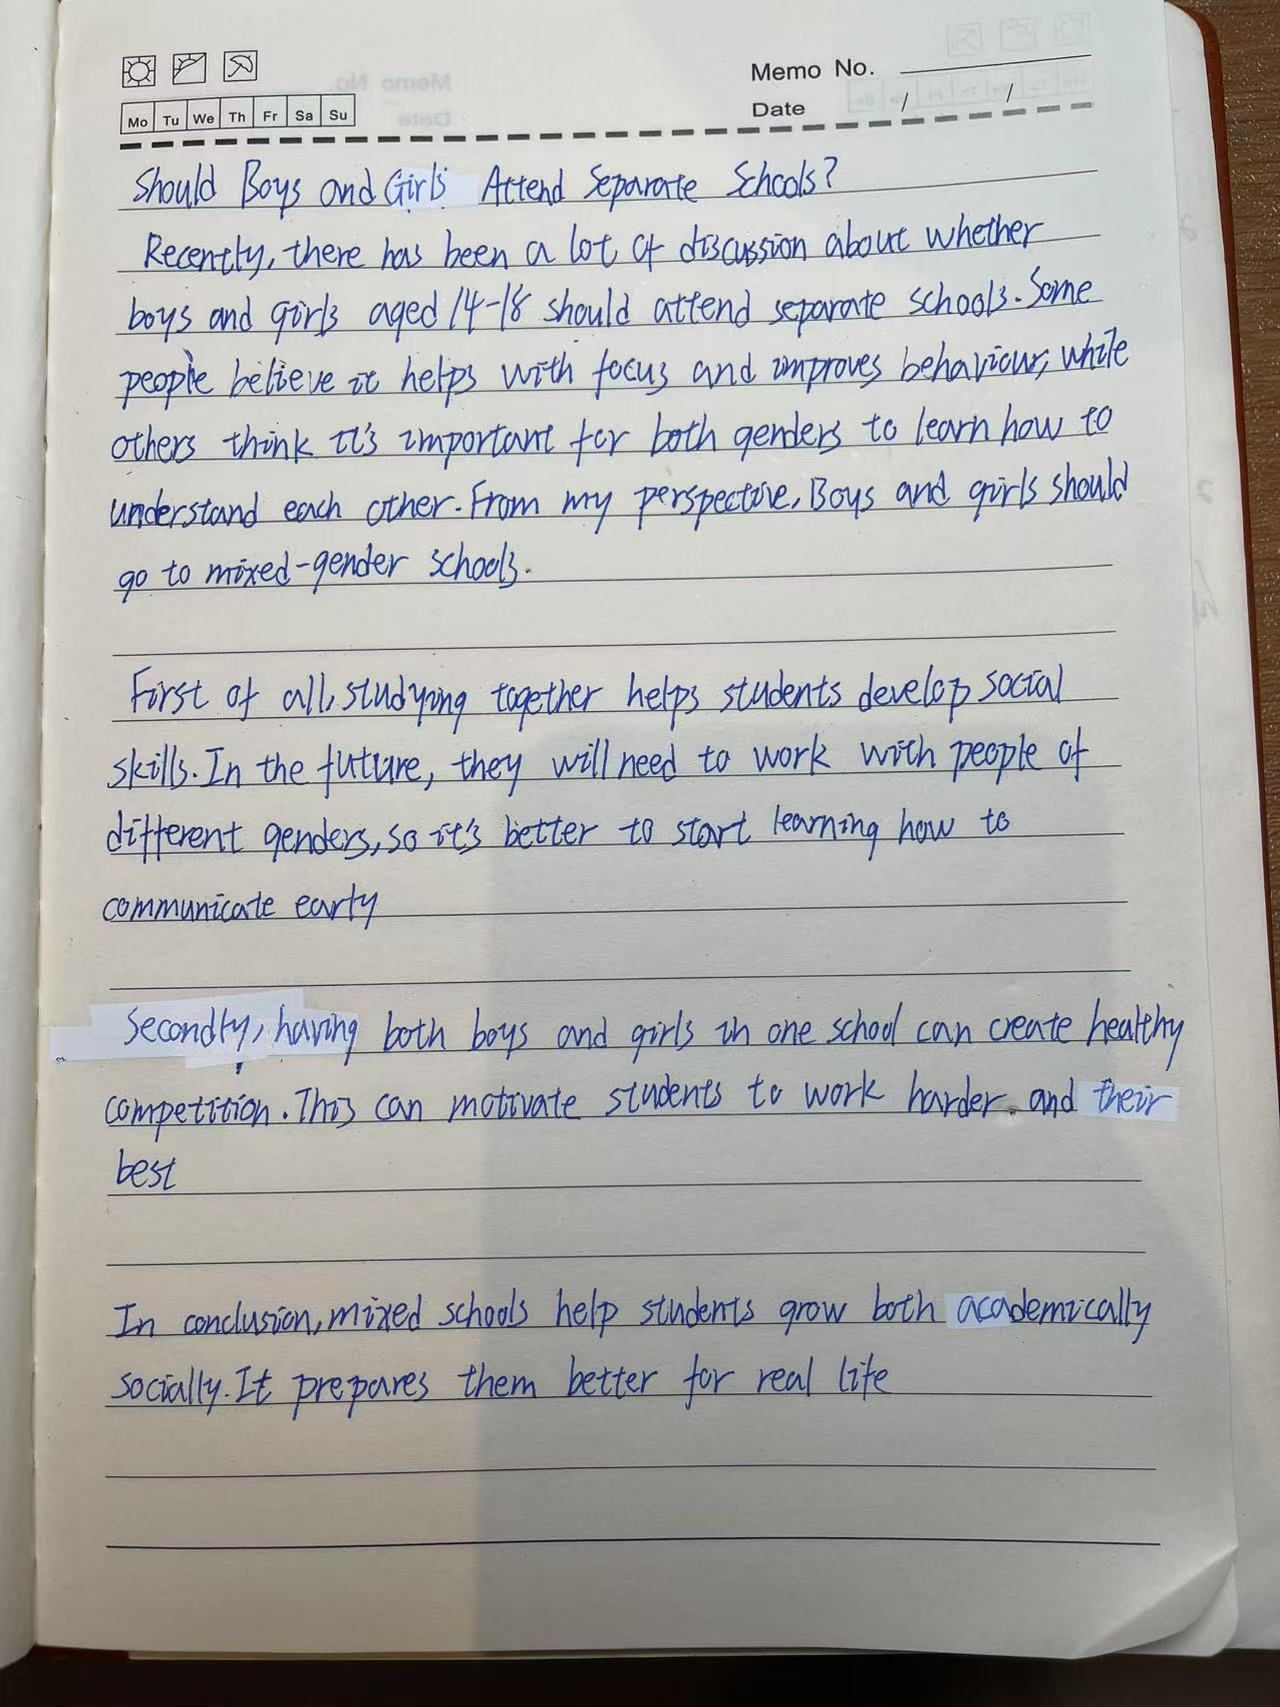 Memo No.
Mo Tu We Th Fr Sa Su
Date / /
Should Boys and Girls Attend Separate Schools?
Recently, there has been a lot of discussion about whether
boys and girls aged 14-18 should attend separate schools. Some
people believe it helps with focus and improves behaviour, while
others think it's important for both genders to learn how to
understand each other. From my perspective, Boys and girls should
go to mixed-gender schools.
First of all, studying together helps students develop social
skills. In the future, they will need to work with people of
different genders, so it's better to start learning how to
communicate early
Secondly, having both boys and girls in one school can create healthy
competition. This can motivate students to work harder. and their
best
In conclusion, mixed schools help students grow both academically
socially. It prepares them better for real life